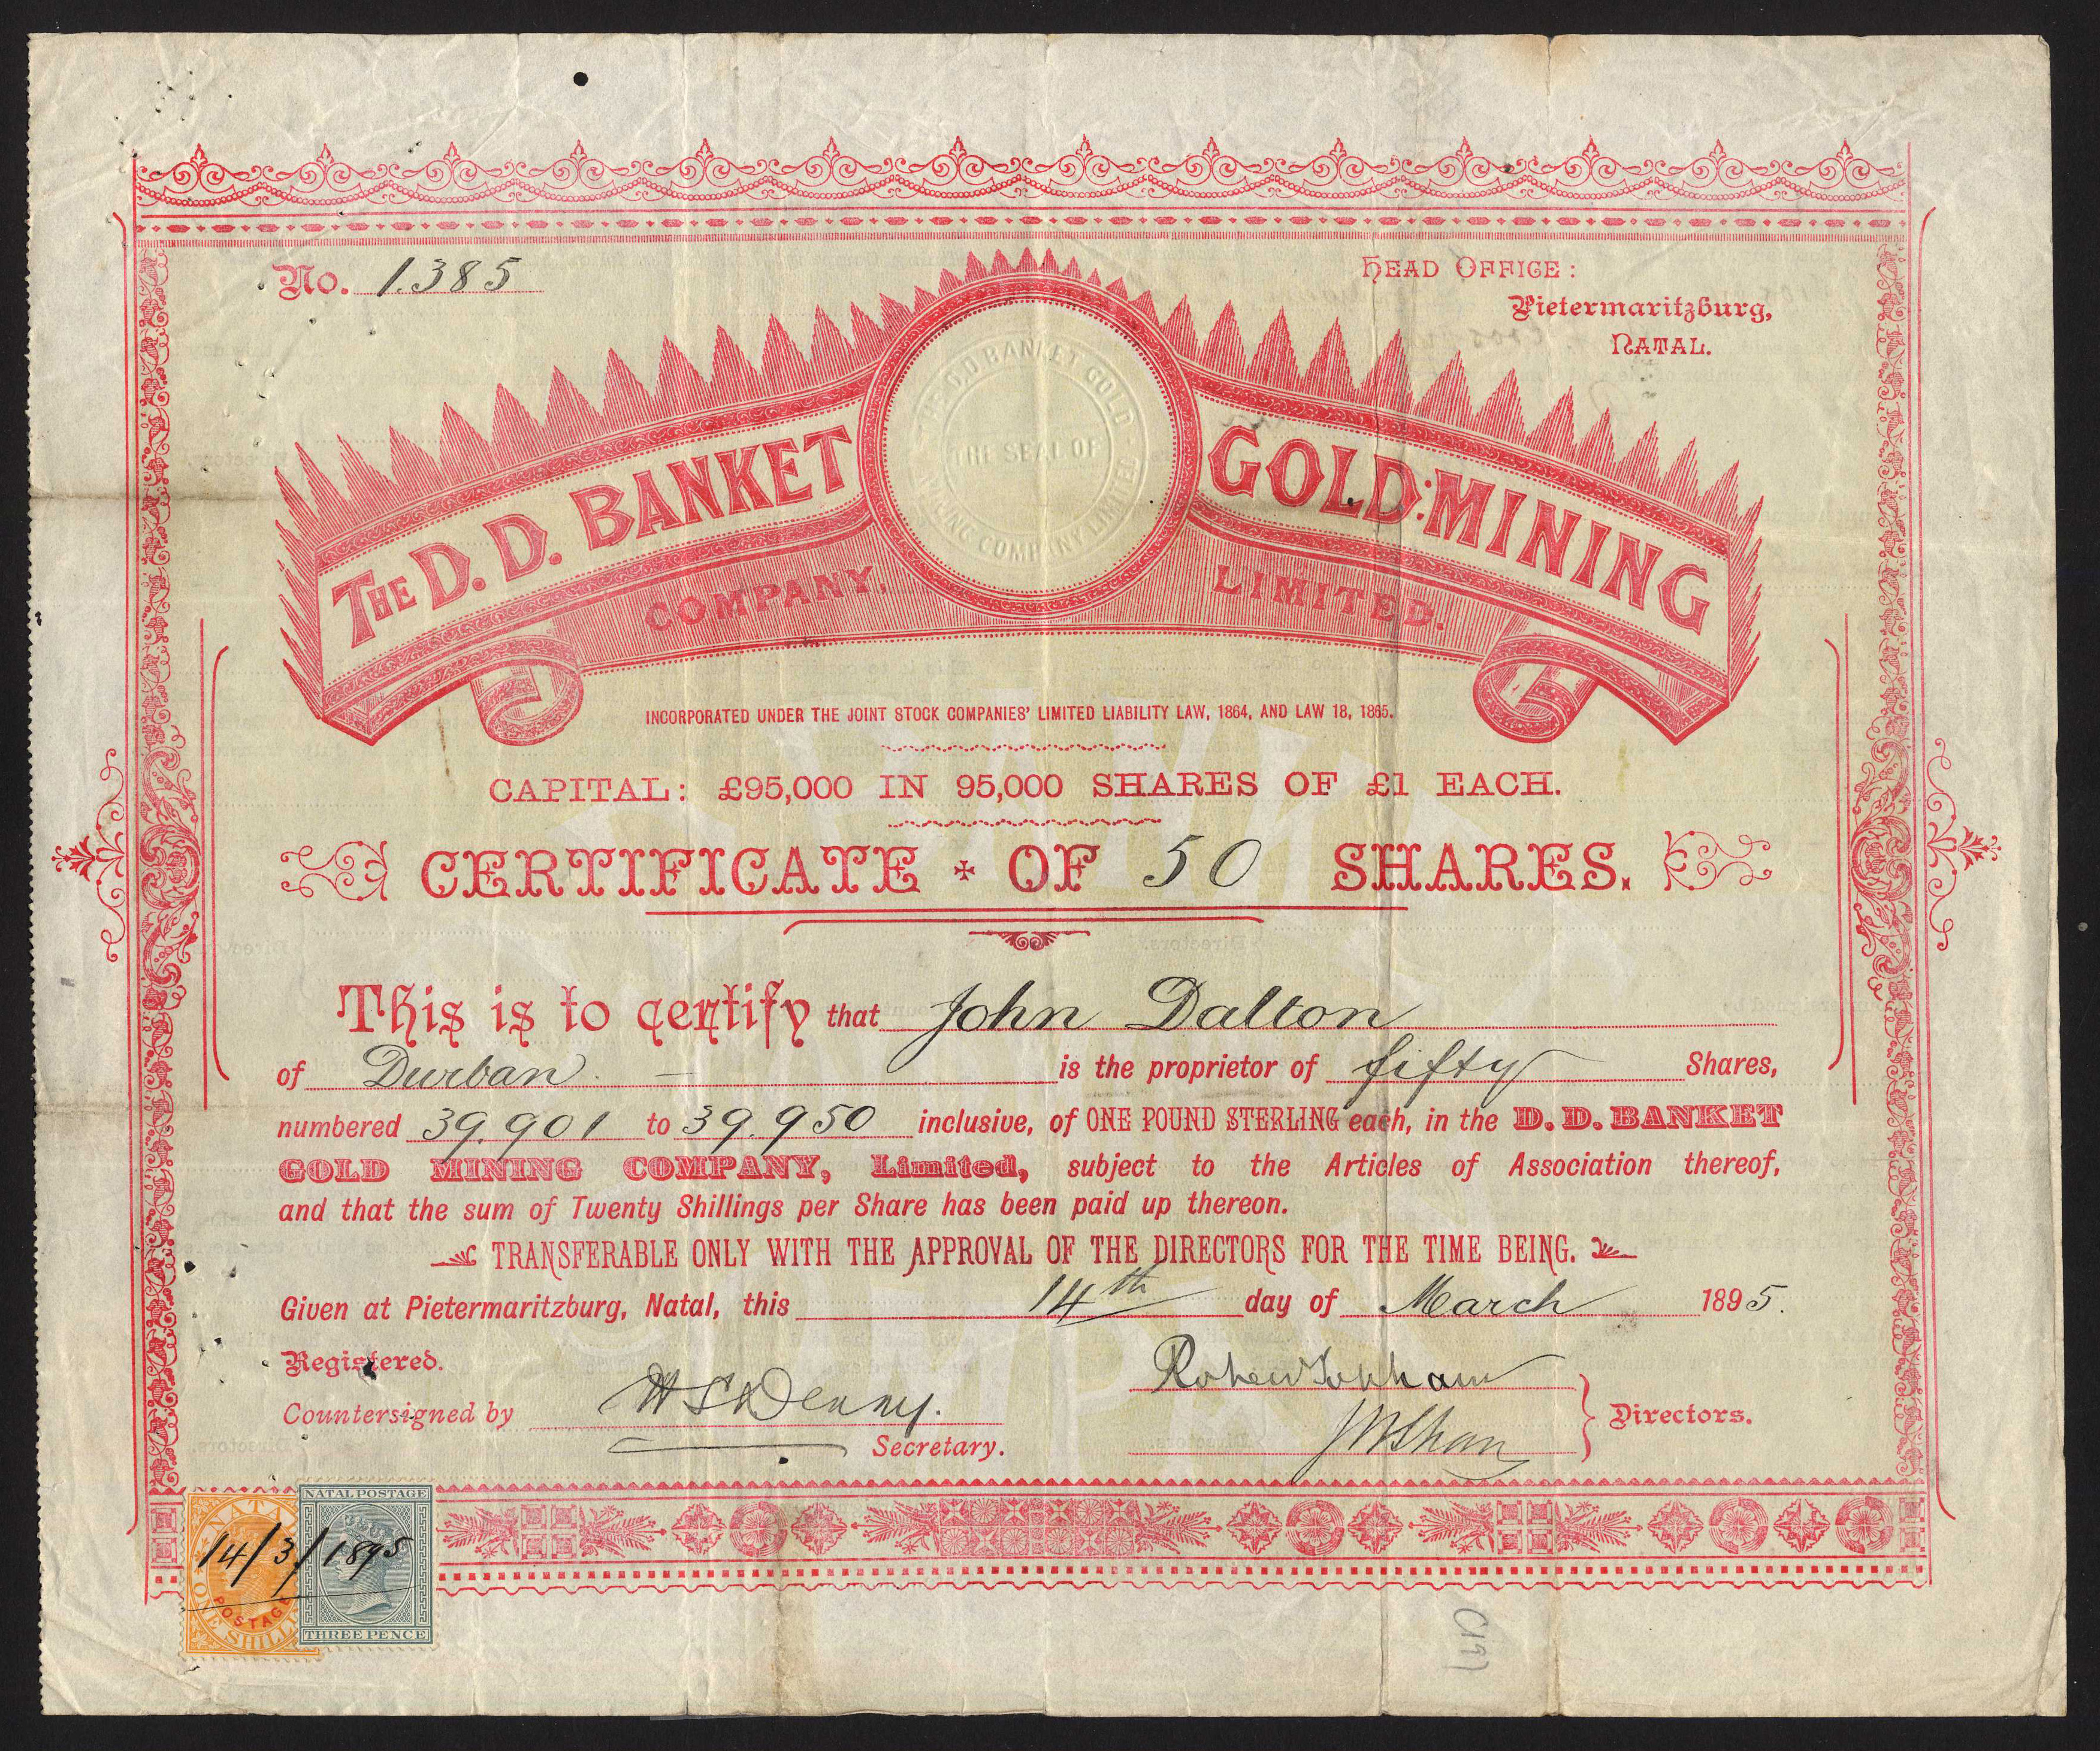 No. 1.385
HEAD OFFICE:
Pietermaritzburg,
NATAL.
THE D. D. BANKET GOLD MINING
COMPANY, LIMITED.
THE D.D. BANKET GOLD
THE SEAL OF
MINING COMPANY LIMITED
INCORPORATED UNDER THE JOINT STOCK COMPANIES' LIMITED LIABILITY LAW, 1864, AND LAW 18, 1865.
CAPITAL: £95,000 IN 95,000 SHARES OF £1 EACH.
CERTIFICATE OF 50 SHARES.
This is to certify that John Dalton
of Durban. — is the proprietor of fifty Shares,
numbered 39.901 to 39.950 inclusive, of ONE POUND STERLING each, in the D. D. BANKET
GOLD MINING COMPANY, Limited, subject to the Articles of Association thereof,
and that the sum of Twenty Shillings per Share has been paid up thereon.
TRANSFERABLE ONLY WITH THE APPROVAL OF THE DIRECTORS FOR THE TIME BEING.
Given at Pietermaritzburg, Natal, this 14th day of March 1895.
Registered.
Robert Topham
Countersigned by
Directors.
Secretary.
NATAL POSTAGE
NATAL
14/3/1895
POSTAGE
ONE SHILLI
THREE PENCE